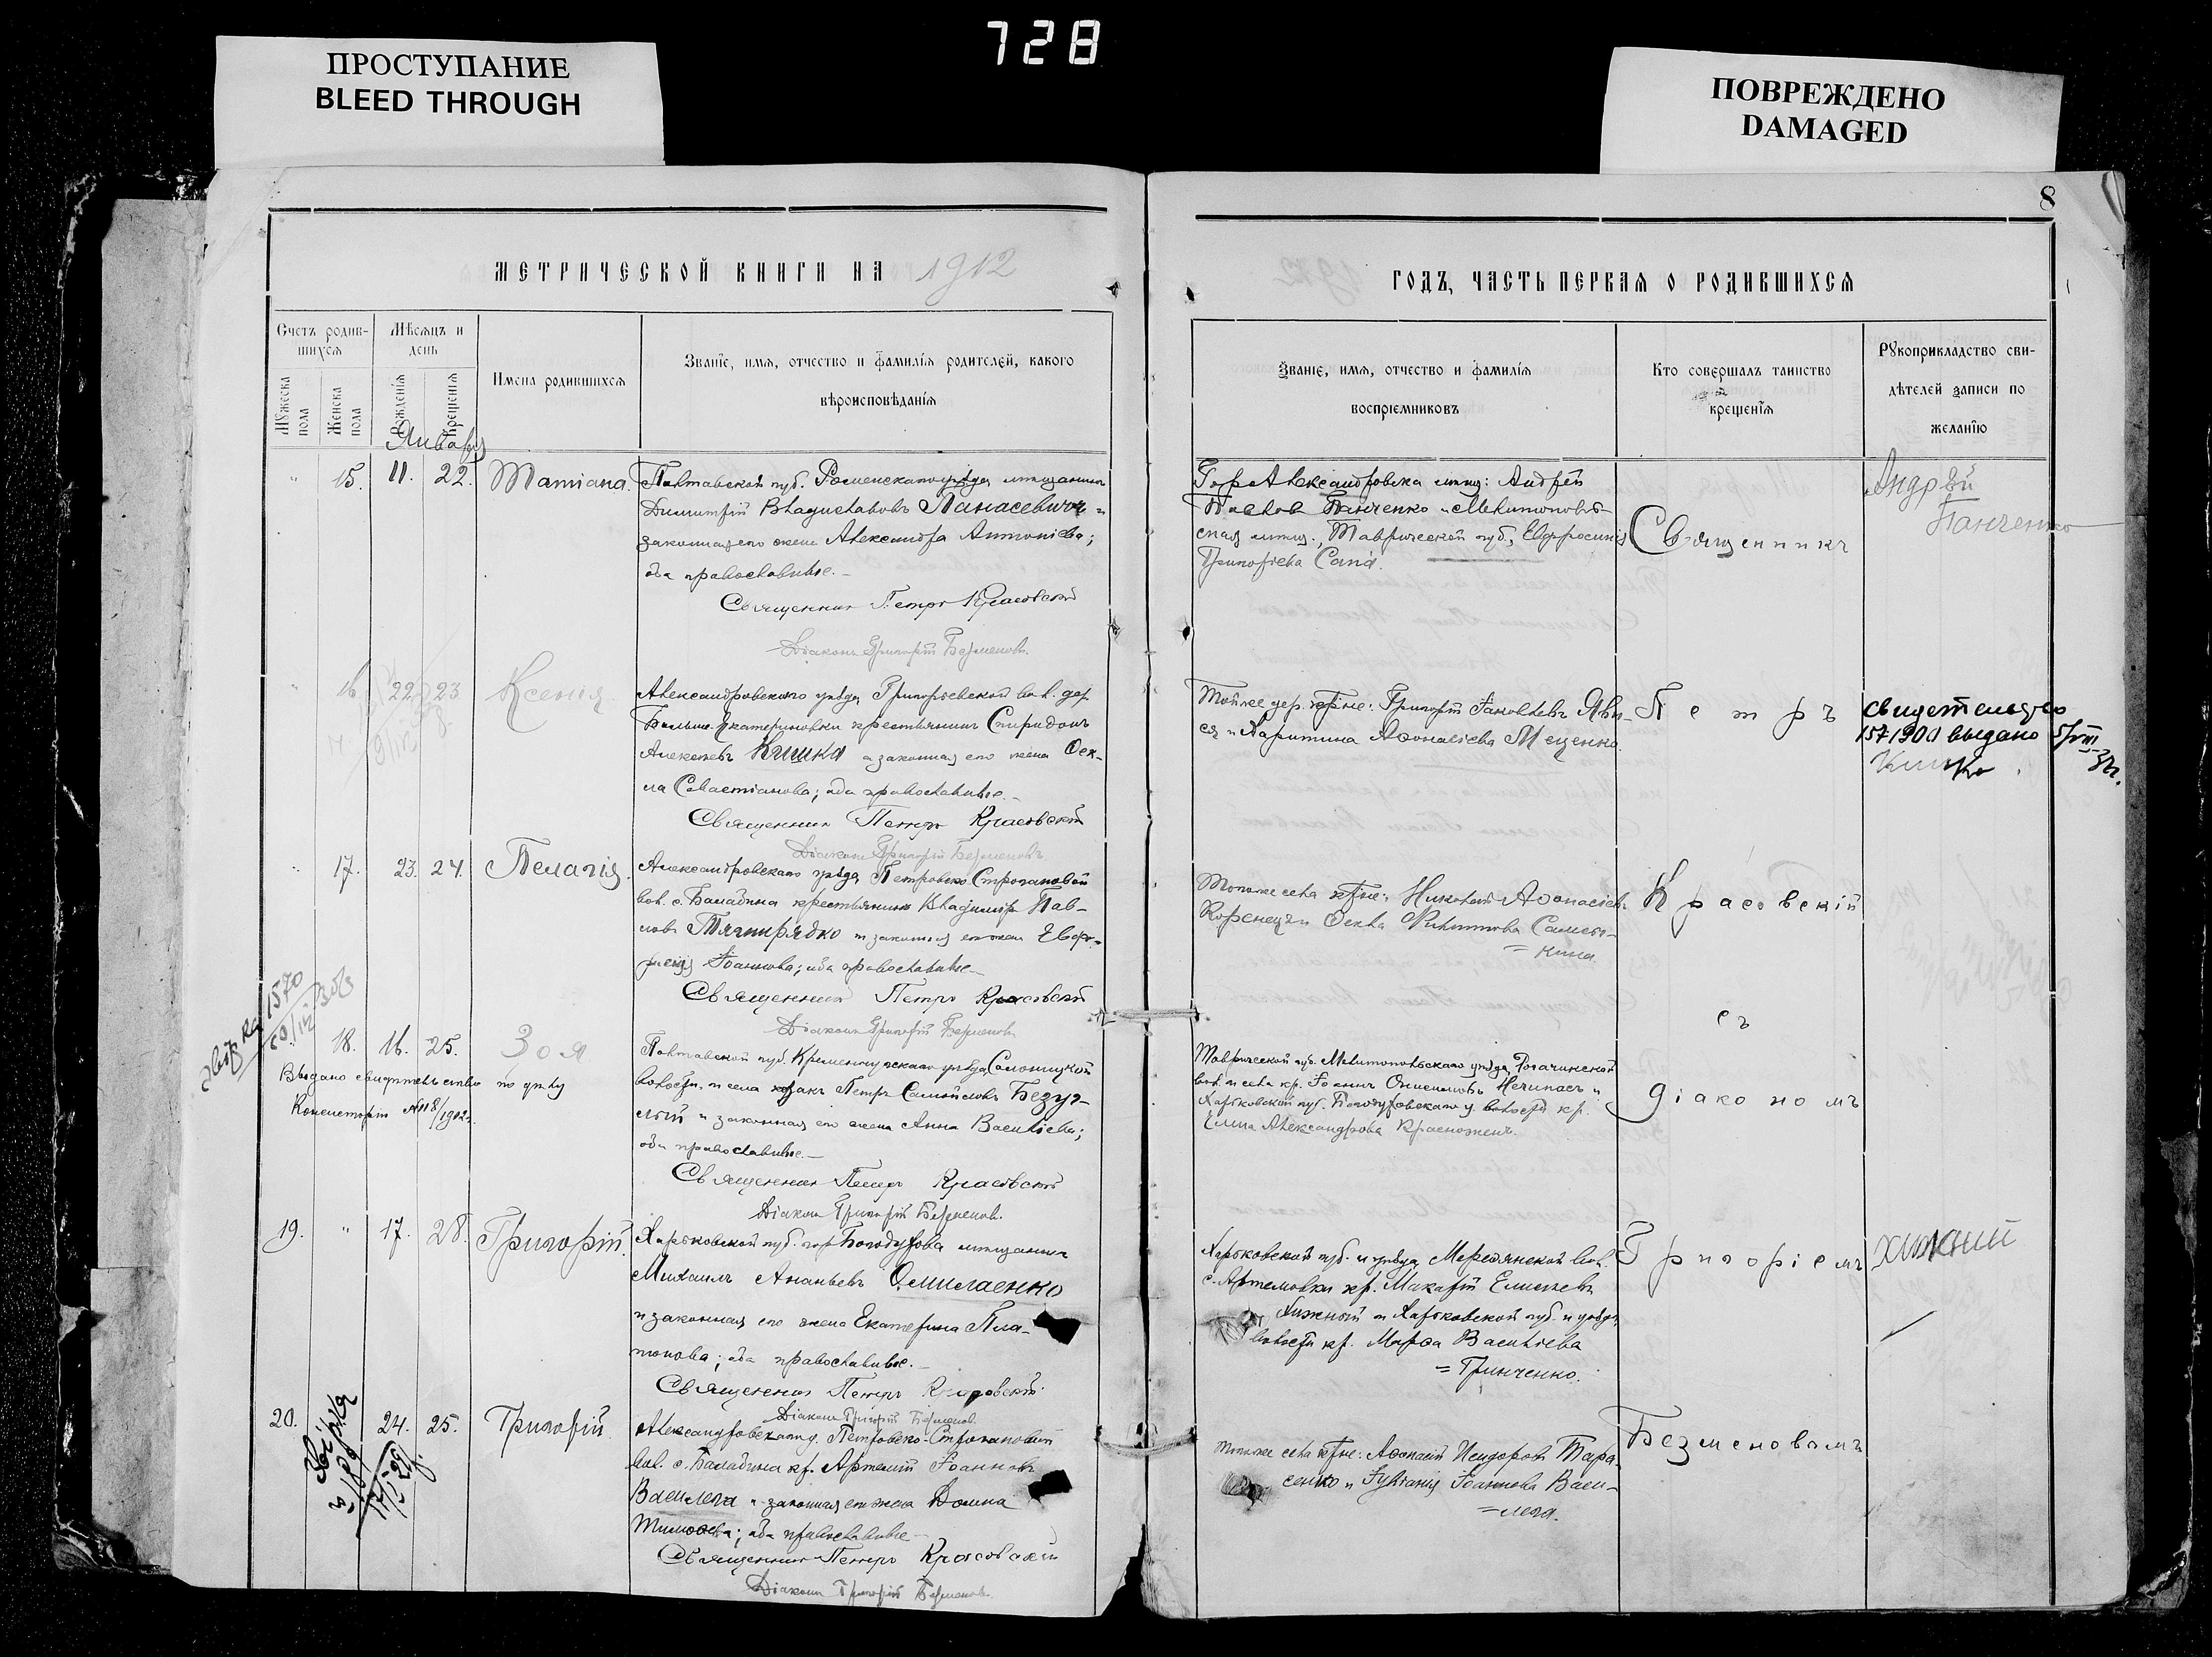 728
ПРОСТУПАНИЕ
BLEED THROUGH
ПОВРЕЖДЕНО
DAMAGED
8
МЕТРИЧЕСКОЙ КНИГИ НА 1912
ГОДЪ, ЧАСТЬ ПЕРВАЯ О РОДИВШИХСЯ
Счетъ родив-
шихся
Мѣсяцъ и
день
Мужеска
пола
Женска
пола
Рожденія
Крещенія
Имена родившихся
Званіе, имя, отчество и фамилія родителей, какого
вѣроисповѣданія
Званіе, имя, отчество и фамилія
воспріемниковъ
Кто совершалъ таинство
крещенія
Рукоприкладство сви-
дѣтелей записи по
желанію
Января
15. 11. 22. Татіана.
Полтавской губ. Роменскаго уѣзда мѣщанинъ
Димитрій Владиславовъ Панасевичъ и
законная его жена Александра Антоніева;
оба православные.
Священникъ Петръ Красовскій
Діаконъ Григорій Безменовъ.
Гор Александровска мѣщ: Андрей
Павловъ Панченко и Мелитополь-
ская мѣщ., Таврической губ., Евфросинія
Григорьева Сапа.
Священникъ
Андрѣй
Панченко
16. 22 23 Ксенія
Александровскаго уѣзда, Григорьевской вол. дер
Больше Екатериновки крестьянинъ Спиридонъ
Алексѣевъ Кишка и законная его жена Оек-
ла Севастіанова; оба православные.
Священникъ Петръ Красовскій
Діаконъ Григорій Безменовъ
Той же дер. кр-не: Григорій Іаковлевъ
и Харитина Аѳонасіева Мещенко.
Петръ
свидетельство
157 1900 выдано 5/VIII
32г.
17. 23. 24. Пелагія.
Александровскаго уѣзда, Петровско-Строгановой
вол. с. Балабина крестьянинъ Владимиръ Пав-
ловъ Тягнирядко и законная его жена Евфо-
Іоаннова; оба православные
Священникъ Петръ Красовскій
Діаконъ Григорій Безменовъ
Того же села кр-не: Николай Аѳонасіевъ
Корѣнецъ и Ѳекла Филиппова Самсы-
= кина.
Красовскій
съ
1570
18. 16. 25. Зоя
Выдано свидѣтельство по
Консисторіи №118/1912г.
Полтавской губ. Кременчугскаго уѣзда, Солоницкой
волости, и села козакъ Петръ Самойловъ Безуг-
лый и законная его жена Анна Васильева;
оба православные.
Священникъ Петръ Красовскій
Діаконъ Григорій Безменовъ.
Таврической губ. Мелитопольскаго уѣзда, Рогачинской
вол. и села кр. Іоаннъ Онисимовъ Нечипасъ и
Харьковской губ. Богодуховскаго у. волости кр.
Елена Александрова Красноженъ.
діакономъ
19. 17. 28. Григорій.
Харьковской губ. гор Богодухова мѣщанинъ
Михаилъ Ананьевъ
и законная его жена Екатерина Пла-
тонова; оба православные.
Священникъ Петръ Красовскій.
Діаконъ Григорій Безменовъ.
Харьковской губ. и уѣзда, Мерефянской вол.
с. Артемовки кр. Макарій Елисѣевъ
Хижный и Харьковской губ. и уѣзда,
волости кр. Марѳа Васильева
= Гринченко.
Григоріемъ
Хижний
20. 24. 25. Григорій
Александровскаго у. Петровско-Строгановой
вол. с. Балабина кр. Артемій Іоанновъ
Василега и законная его жена Домна
Тимоѳеева; оба православные
Священникъ Петръ Красовскій
Діаконъ Григорій Безменовъ.
Того же села кр-не: Аѳонасій Исидоровъ Тара-
сенко и Іуліанія Іоаннова Васи-
= лега.
Безменовымъ